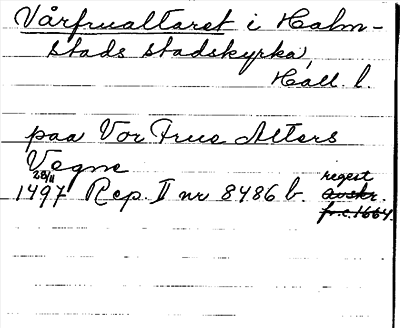 Vårfrualtaret i Halm-
stads stadskyrka,
Hall. l.
paa Vor Frue Alters
Vegne
28/11
1497 Rep. II nr 8486 b. regest
avskr.
fr. c. 1664.